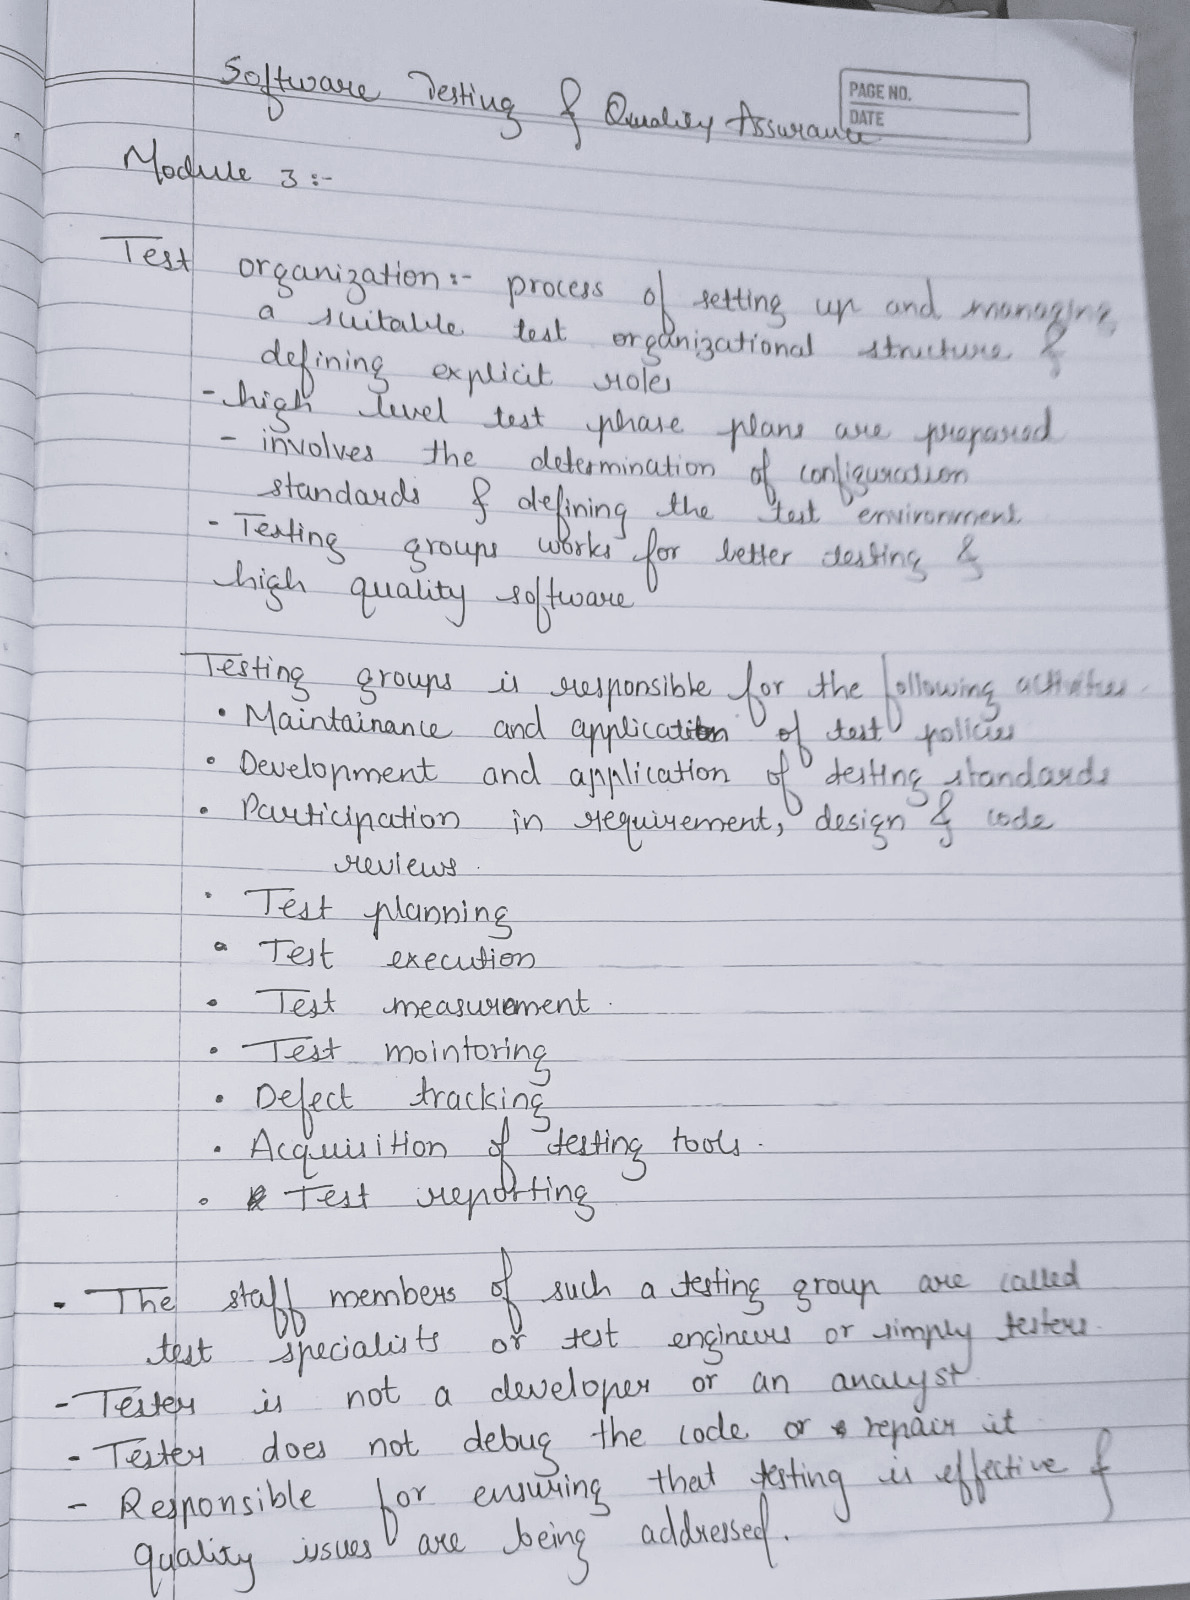 Software Testing & Quality Assurance
PAGE NO.
DATE
Module 3 :-
Test organization :- process of setting up and managing
a suitable test organizational structure &
defining explicit roles
- high level test phase plans are prepared
- involves the determination of configuration
standards & defining the test environment
- Testing groups works for better testing &
high quality software
Testing groups is responsible for the following activities.
• Maintainance and application of test policies
• Development and application of testing standards
• Participation in requirement, design & code
reviews.
• Test planning
• Test execution
• Test measurement.
• Test mointoring
• Defect tracking
• Acquisition of testing tools.
• Test reporting
- The staff members of such a testing group are called
test specialists or test engineers or simply testers.
- Tester is not a developer or an analyst.
- Tester does not debug the code or repair it.
- Responsible for ensuring that testing is effective &
quality issues are being addressed.